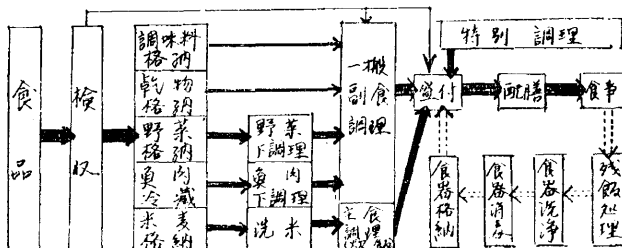 食品
検収
調味料
格納
乾物
格納
野菜
格納
魚肉
冷蔵
米麦
格納
野菜
下調理
魚肉
下調理
洗米
一般
副食
調理
主食
調理
特別調理
盛付
配膳
食事
残飯処理
食器洗浄
食器消毒
食器格納